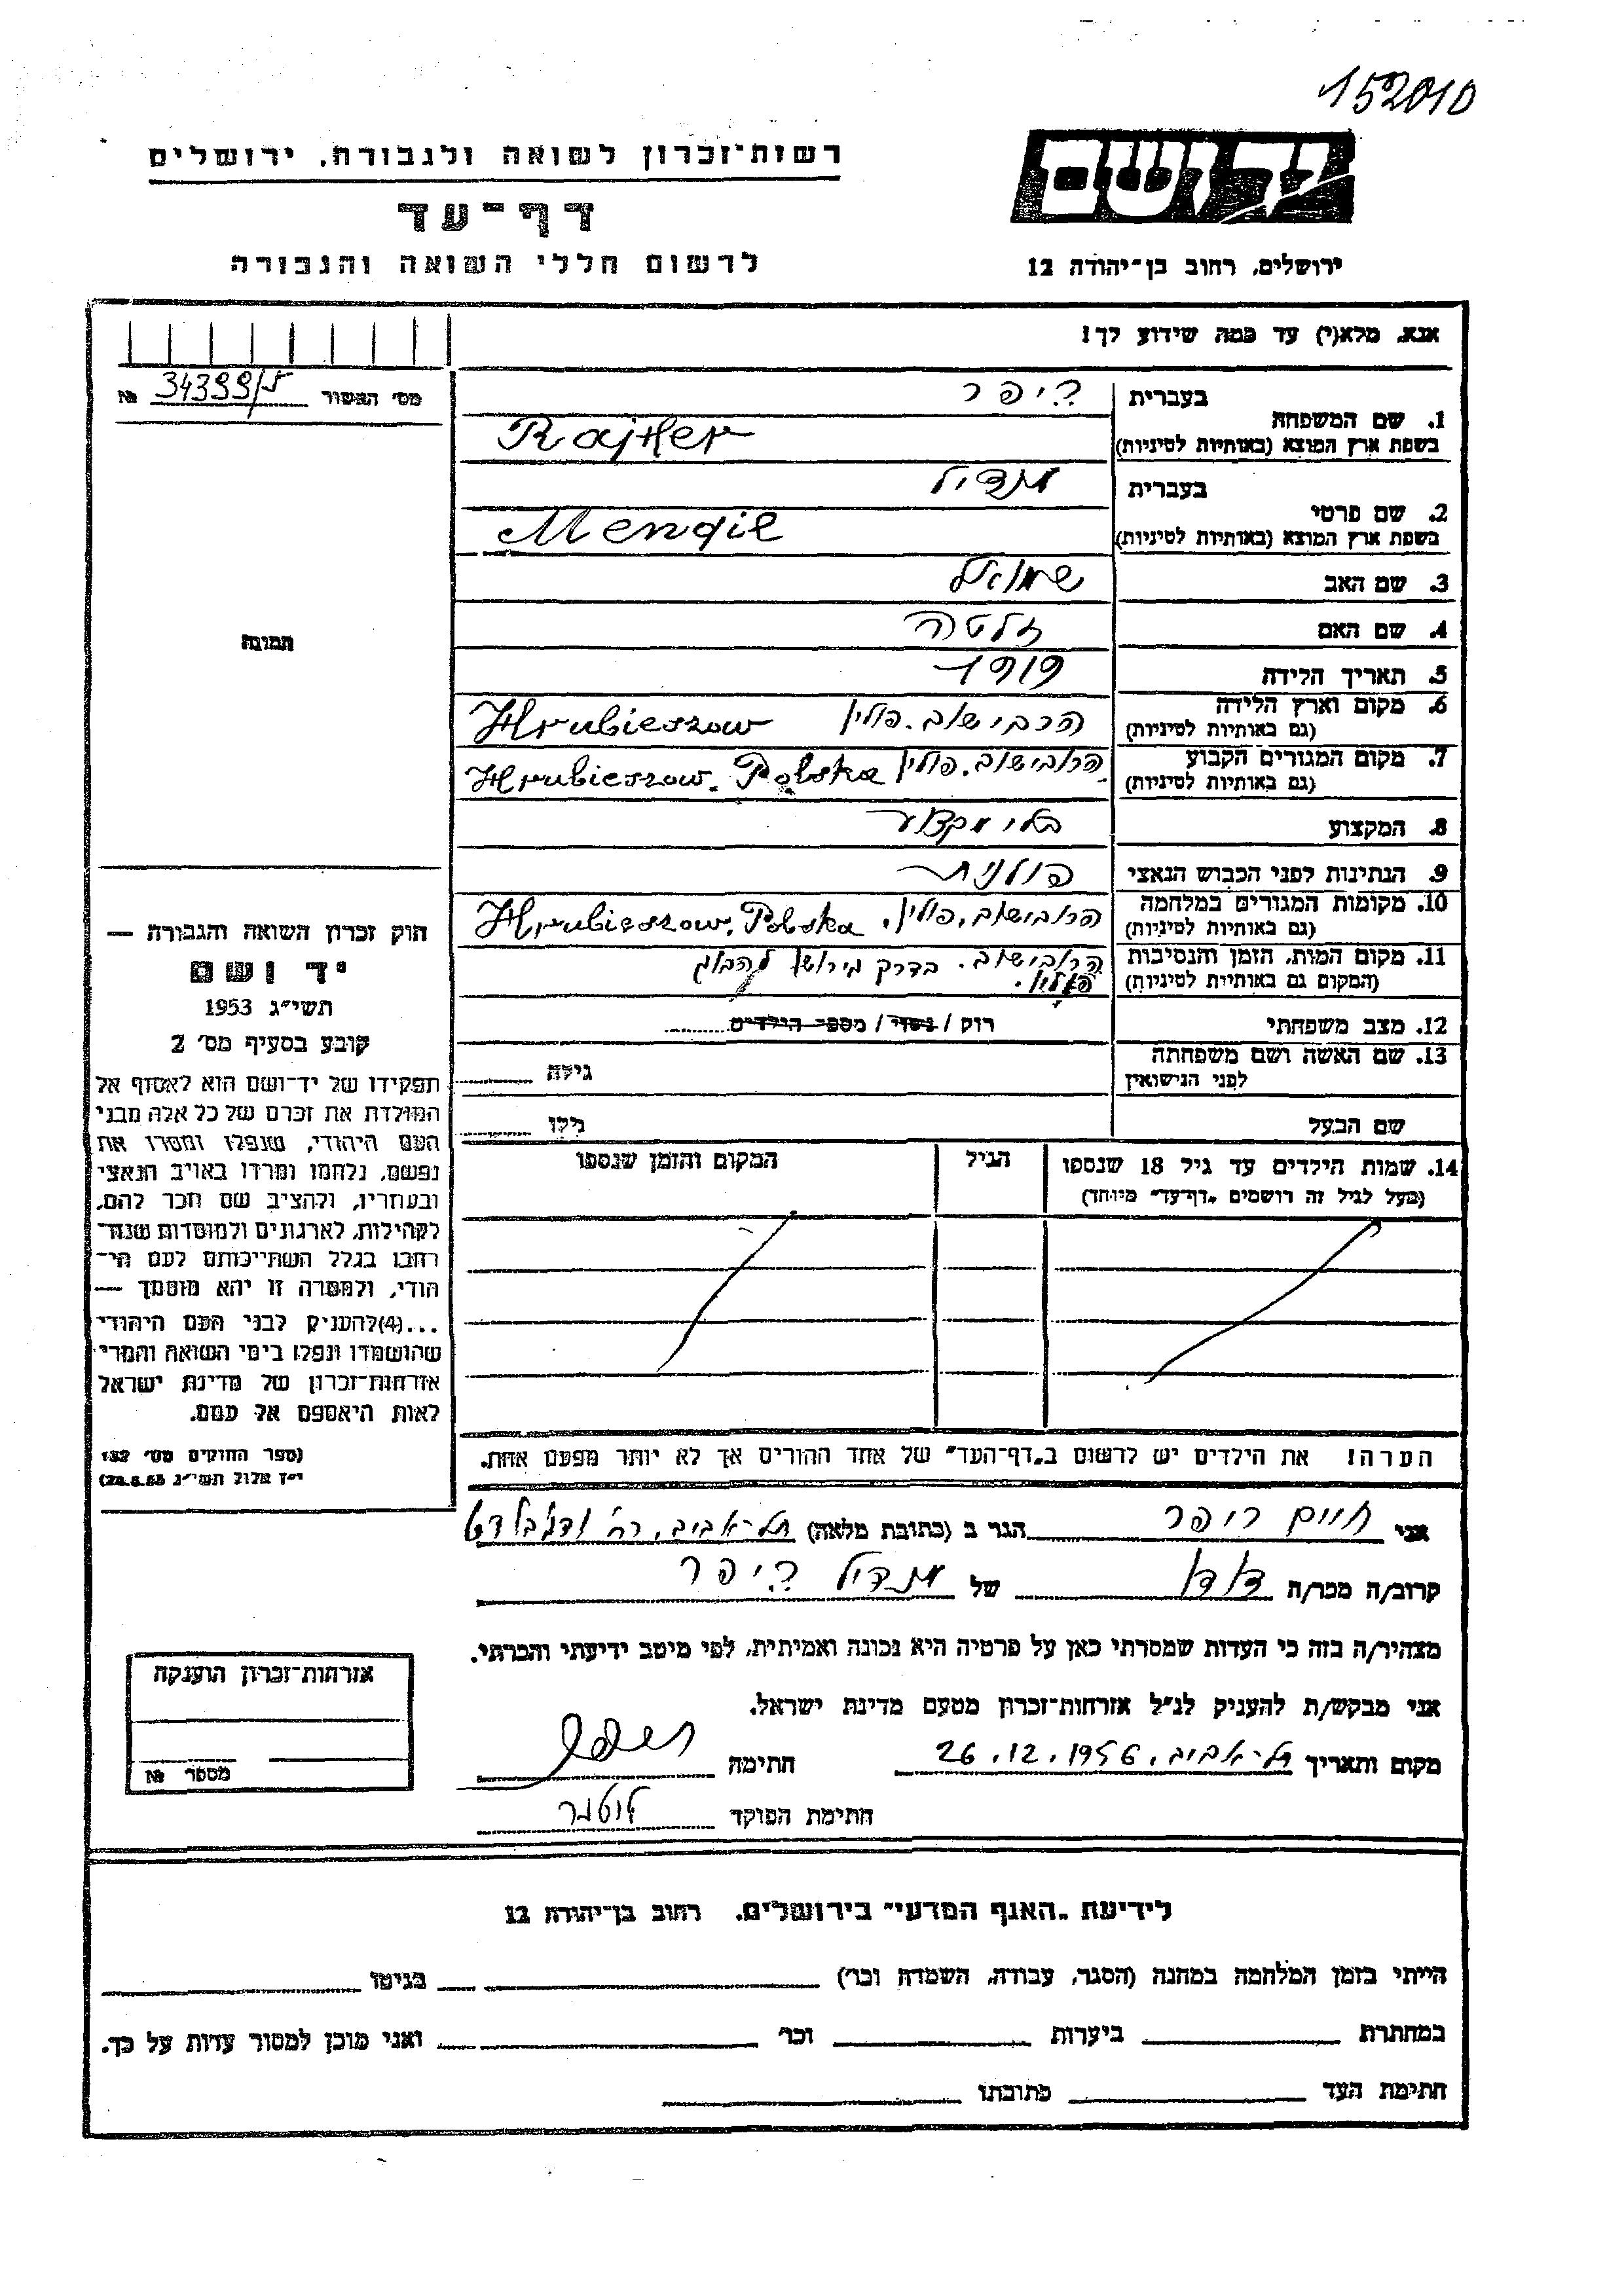 152010
יד ושם
רשות־זכרון לשואה ולגבורה, ירושלים
דף־עד
לרשום חללי השואה והגבורה
ירושלים, רחוב בן־יהודה 12
אנא, מלא(י) עד כמה שידוע לך!
מס׳ האשור 34399/ № 
1. שם המשפחה
בעברית ריפר
בשפת ארץ המוצא (באותיות לטיניות) Rajfer
2. שם פרטי
בעברית מנדיל
בשפת ארץ המוצא (באותיות לטיניות) Mendil
3. שם האב שמואל
4. שם האם זלטה
5. תאריך הלידה 1919
6. מקום וארץ הלידה
(גם באותיות לטיניות) הרבישוב. פולין Hrubieszow
7. מקום המגורים הקבוע
(גם באותיות לטיניות) הרובישוב. פולין Hrubieszow. Polska
8. המקצוע בלי מקצוע
9. הנתינות לפני הכבוש הנאצי פולנית
10. מקומות המגורים במלחמה
(גם באותיות לטיניות) הרובישוב, פולין. Hrubieszow. Polska
11. מקום המות, הזמן והנסיבות
(המקום גם באותיות לטיניות) הרובישוב. בדרך
פולין.
12. מצב משפחתי רווק / נשוי / מספר הילדים
13. שם האשה ושם משפחתה
לפני הנישואין גילה
שם הבעל גילו
14. שמות הילדים עד גיל 18 שנספו
(מעל לגיל זה רושמים „דף־עד״ מיוחד)
הגיל
המקום והזמן שנספו
הערה! את הילדים יש לרשום ב„דף־העד״ של אחד ההורים אך לא יותר מפעם אחת.
תמונה
חוק זכרון השואה והגבורה —
יד ושם
תשי״ג 1953
קובע בסעיף מס׳ 2
תפקידו של יד־ושם הוא לאסוף אל
המולדת את זכרם של כל אלה מבני
העם היהודי, שנפלו ומסרו את
נפשם, נלחמו ומרדו באויב הנאצי
ובעוזריו, ולהציב שם וזכר להם,
לקהילות, לארגונים ולמוסדות שנח־
רבו בגלל השתייכותם לעם הי־
הודי, ולמטרה זו יהא מוסמך —
...(4)להעניק לבני העם היהודי
שהושמדו ונפלו בימי השואה והמרי
אזרחות־זכרון של מדינת ישראל
לאות היאספם אל עמם.
(ספר החוקים מס׳ 132
י״ז אלול תשי״ג 28.8.53)
אני חיים ריפר הגר ב (כתובת מלאה) תל־אביב, רח׳
קרוב/ה מכר/ה דוד של מנדיל ריפר
מצהיר/ה בזה כי העדות שמסרתי כאן על פרטיה היא נכונה ואמיתית, לפי מיטב ידיעתי והכרתי.
אני מבקש/ת להעניק לנ״ל אזרחות־זכרון מטעם מדינת ישראל.
מקום ותאריך תל־אביב, 26.12.1956 חתימה
חתימת הפוקד
אזרחות־זכרון הוענקה
מספר №
לידיעת „האגף המדעי״ בירושלים. רחוב בן־יהודה 12
הייתי בזמן המלחמה במחנה (הסגר, עבודה, השמדה וכו׳) בגיטו
במחתרת ביערות וכו׳ ואני מוכן למסור עדות על כך.
חתימת העד כתובתו